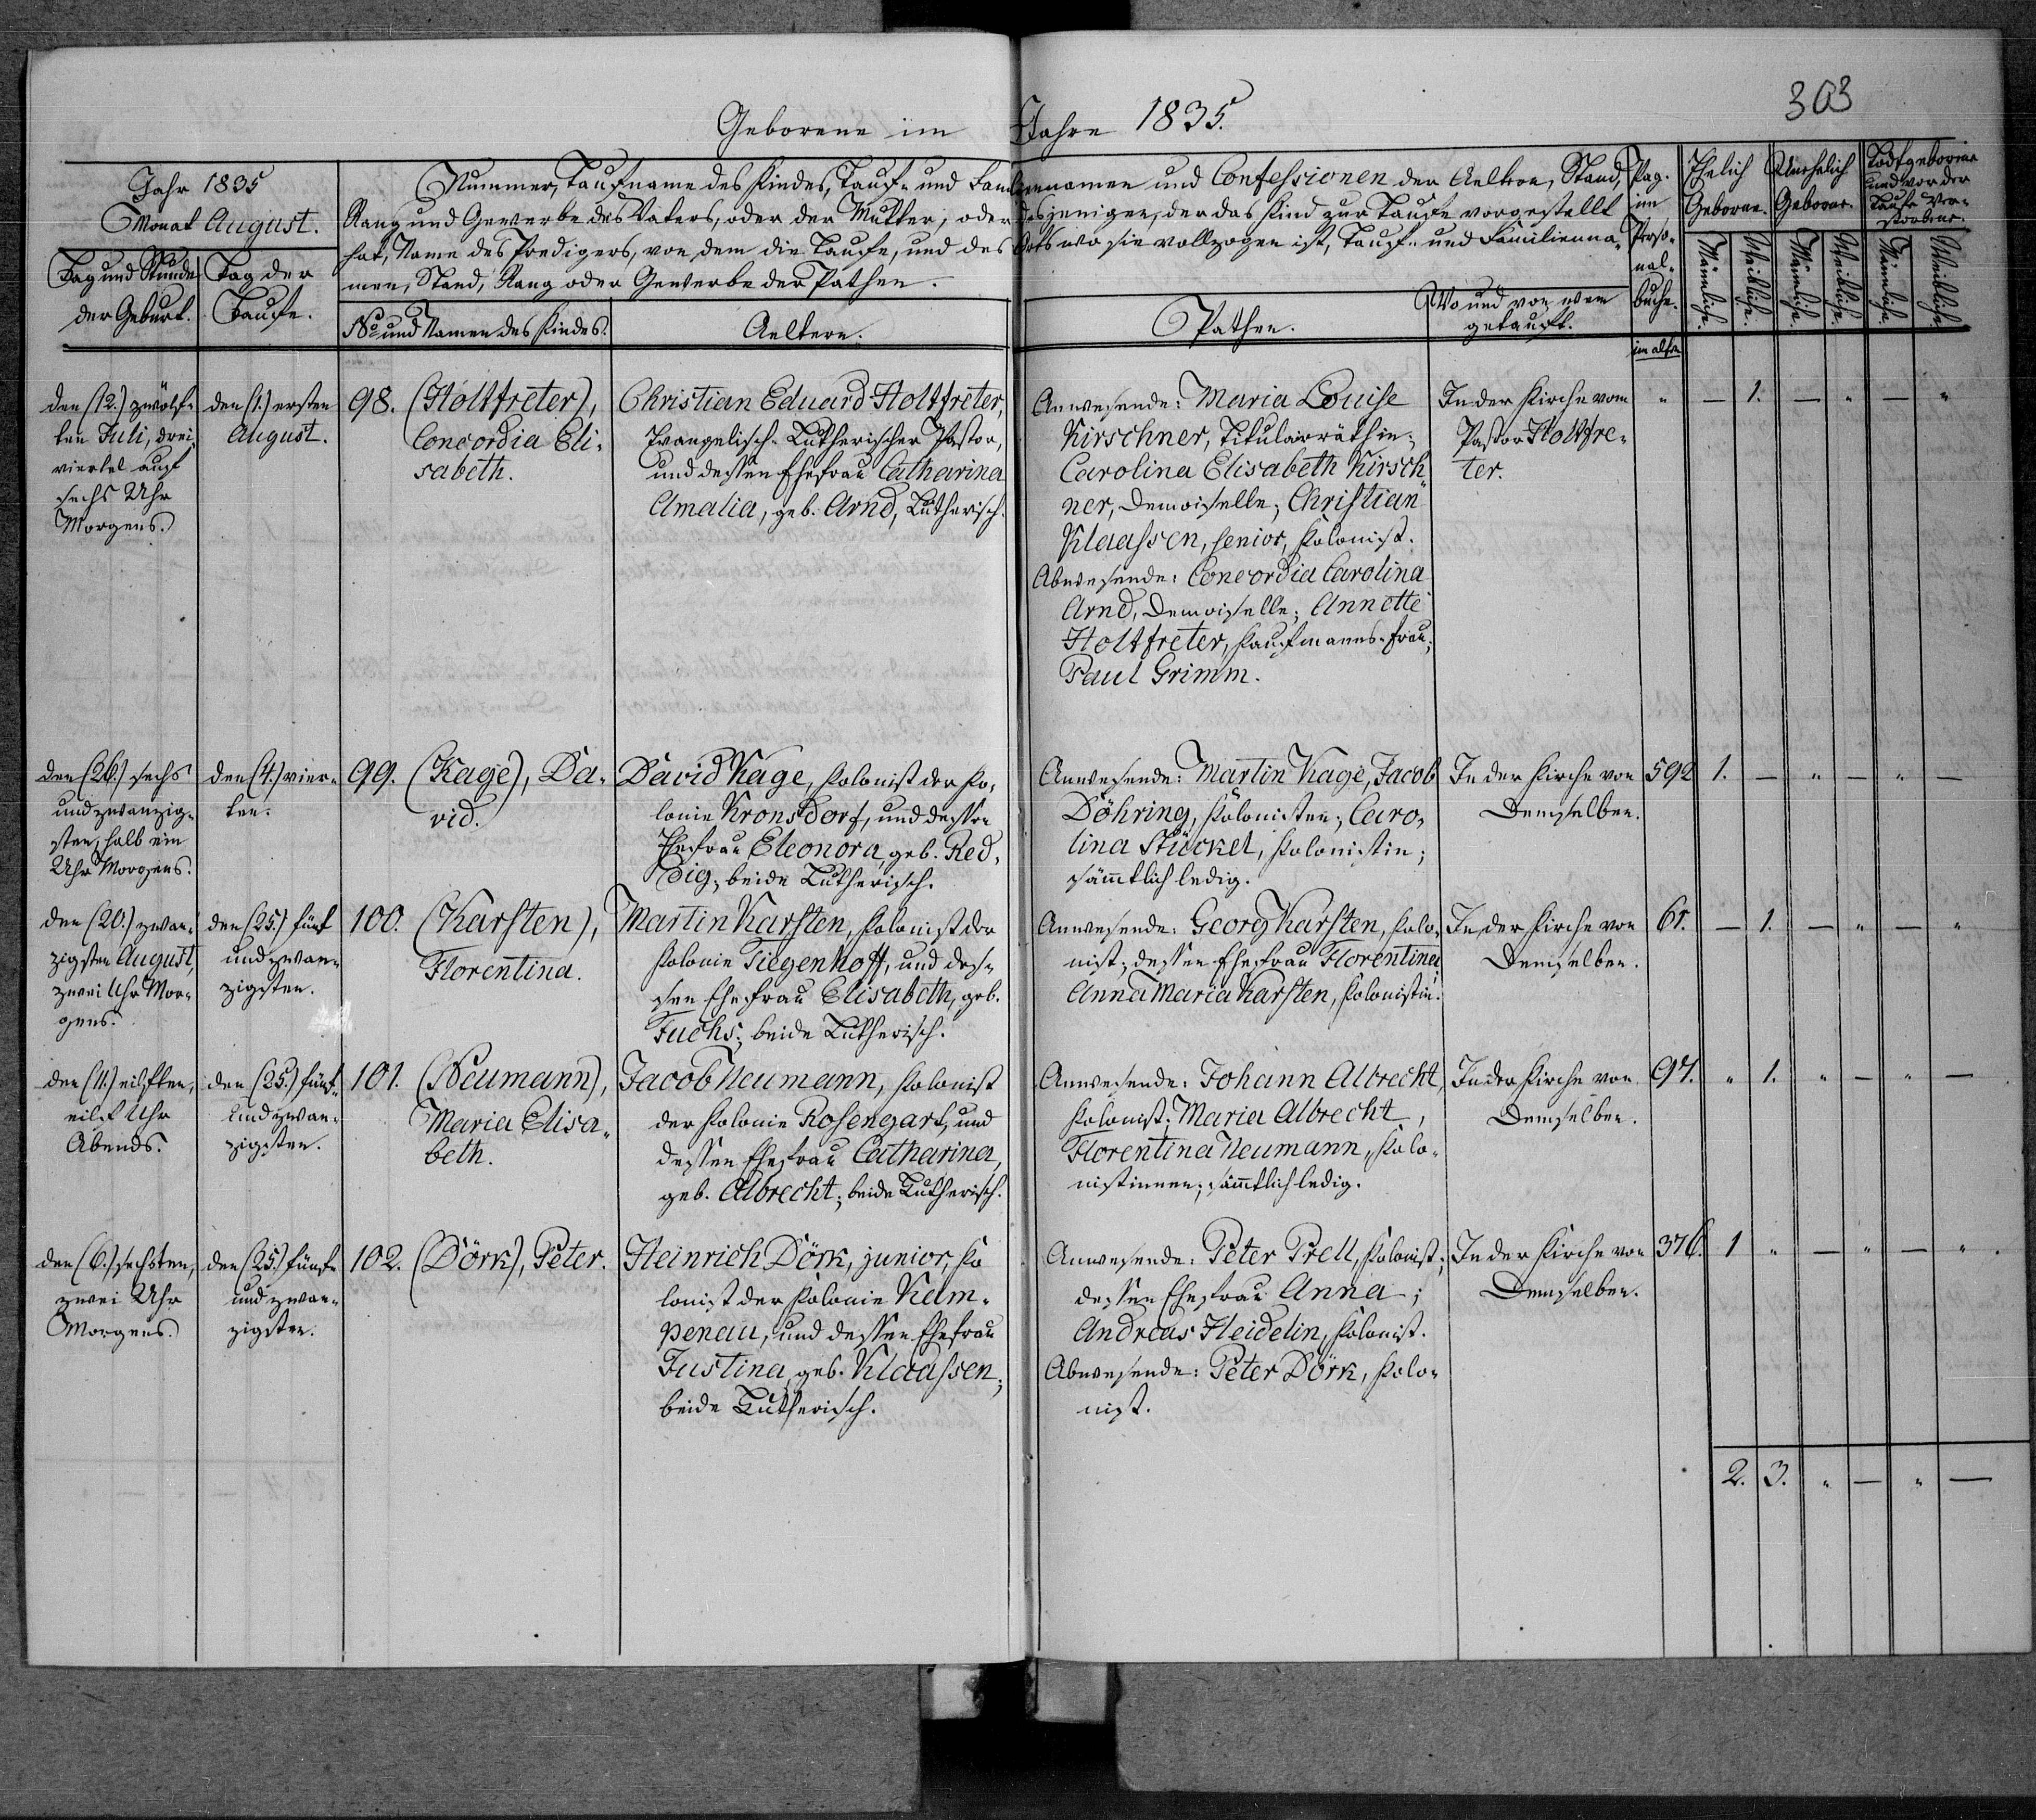 303
Geborene im Jahre 1835.
Jahr 1835
Monat August.
Tag und Stunde
der Geburt.
Tag der
Taufe.
Nummer, Taufname des Kindes, Tauf- und Familiennamen und Confessionen der Aeltern, Stand,
Rang und Gewerbe des Vaters, oder der Mutter, oder desjenigen, der das Kind zur Taufe vorgestellt
hat, Name des Predigers, von dem die Taufe, und des Orts wo sie vollzogen ist, Tauf- und Familienna-
men, Stand, Rang oder Gewerbe der Pathen.
No und Namen des Kindes.
Aeltern.
Pathen.
Wo und von wem
getauft.
Pag.
im
Perso-
nal-
buche.
Ehelich
Geborne.
Unehelich
Geborne.
Todtgeborne
und vor der
Taufe Ver-
storbene.
Männliche.
Weibliche.
Männliche.
Weibliche.
Männliche.
Weibliche.
im alten
den (12.) zwölf-
ten Juli, drei
viertel auf
sechs Uhr
Morgens.
den (1.) ersten
August.
98. (Holtfreter),
Concordia Eli-
sabeth.
Christian Eduard Holtfreter,
Evangelisch-Lutherischer Pastor,
und dessen Ehefrau Catharina
Amalia, geb. Arnd, Lutherisch.
Anwesende: Maria Louise
Kirschner, Titulairräthin;
Carolina Elisabeth Kirsch-
ner, Demoiselle; Christian
Klaassen, senior, Kolonist.
Abwesende: Concordia Carolina
Arnd, Demoiselle; Annette
Holtfreter, Kaufmanns-frau;
Paul Grimm.
In der Kirche vom
Pastor Holtfre-
ter.
" — 1. — " — "
den (26.) sechs
und zwanzig-
sten, halb ein
Uhr Morgens.
den (4.) vier-
ten.
99. (Kage), Da-
vid.
David Kage, Kolonist der Ko-
lonie Kronsdorf, und dessen
Ehefrau Eleonora, geb. Red-
dig; beide Lutherisch.
Anwesende: Martin Kage, Jacob
Döhring, Kolonisten; Caro-
lina Stückel, Kolonistin;
sämtlich ledig.
In der Kirche von
Demselben.
592 1. — " — " —
den (20.) zwan-
zigsten August,
zwei Uhr Mor-
gens.
den (25.) fünf
und zwan-
zigsten.
100. (Karsten),
Florentina.
Martin Karsten, Kolonist der
Kolonie Tiegenhoff, und des-
sen Ehefrau Elisabeth, geb.
Fuchs; beide Lutherisch.
Anwesende: Georg Karsten, Kolo-
nist; dessen Ehefrau Florentina;
Anna Maria Karsten, Kolonistin.
In der Kirche von
Demselben.
61. — 1. — " — "
den (11.) eilften,
eilf Uhr
Abends.
den (25.) fünf-
und zwan-
zigsten.
101. (Neumann),
Maria Elisa-
beth.
Jacob Neumann, Kolonist
der Kolonie Rosengart, und
dessen Ehefrau Catharina,
geb. Albrecht; beide Lutherisch.
Anwesende: Johann Albrecht,
Kolonist; Maria Albrecht,
Florentina Neumann, Kolo-
nistinnen; sämtlich ledig.
In der Kirche von
Demselben.
97. " 1. " — " —
den (6.) sechsten,
zwei Uhr
Morgens.
den (25.) fünf-
und zwan-
zigsten.
102. (Dörk), Peter.
Heinrich Dörk, junior, Ko
lonist der Kolonie Kam-
penau, und dessen Ehefrau
Justina, geb. Klaassen;
beide Lutherisch.
Anwesende: Peter Prell, Kolonist;
dessen Ehefrau Anna;
Andreas Heidelin, Kolonist.
Abwesende: Peter Dörk, Kolo-
nist.
In der Kirche von
Demselben.
376. 1 " — " — "
2. 3. " — " —